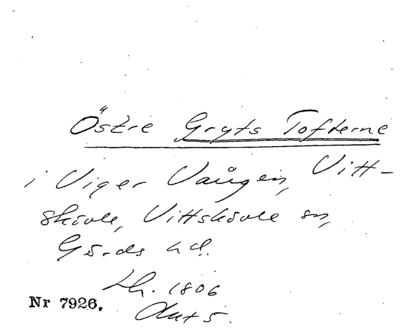 Östre Gryts Tofterne
i Viger Vången, Vitt-
skövle, Vittskövle sn,
Gärds hd.
Lh. 1806
Akt 5.
Nr 7926.